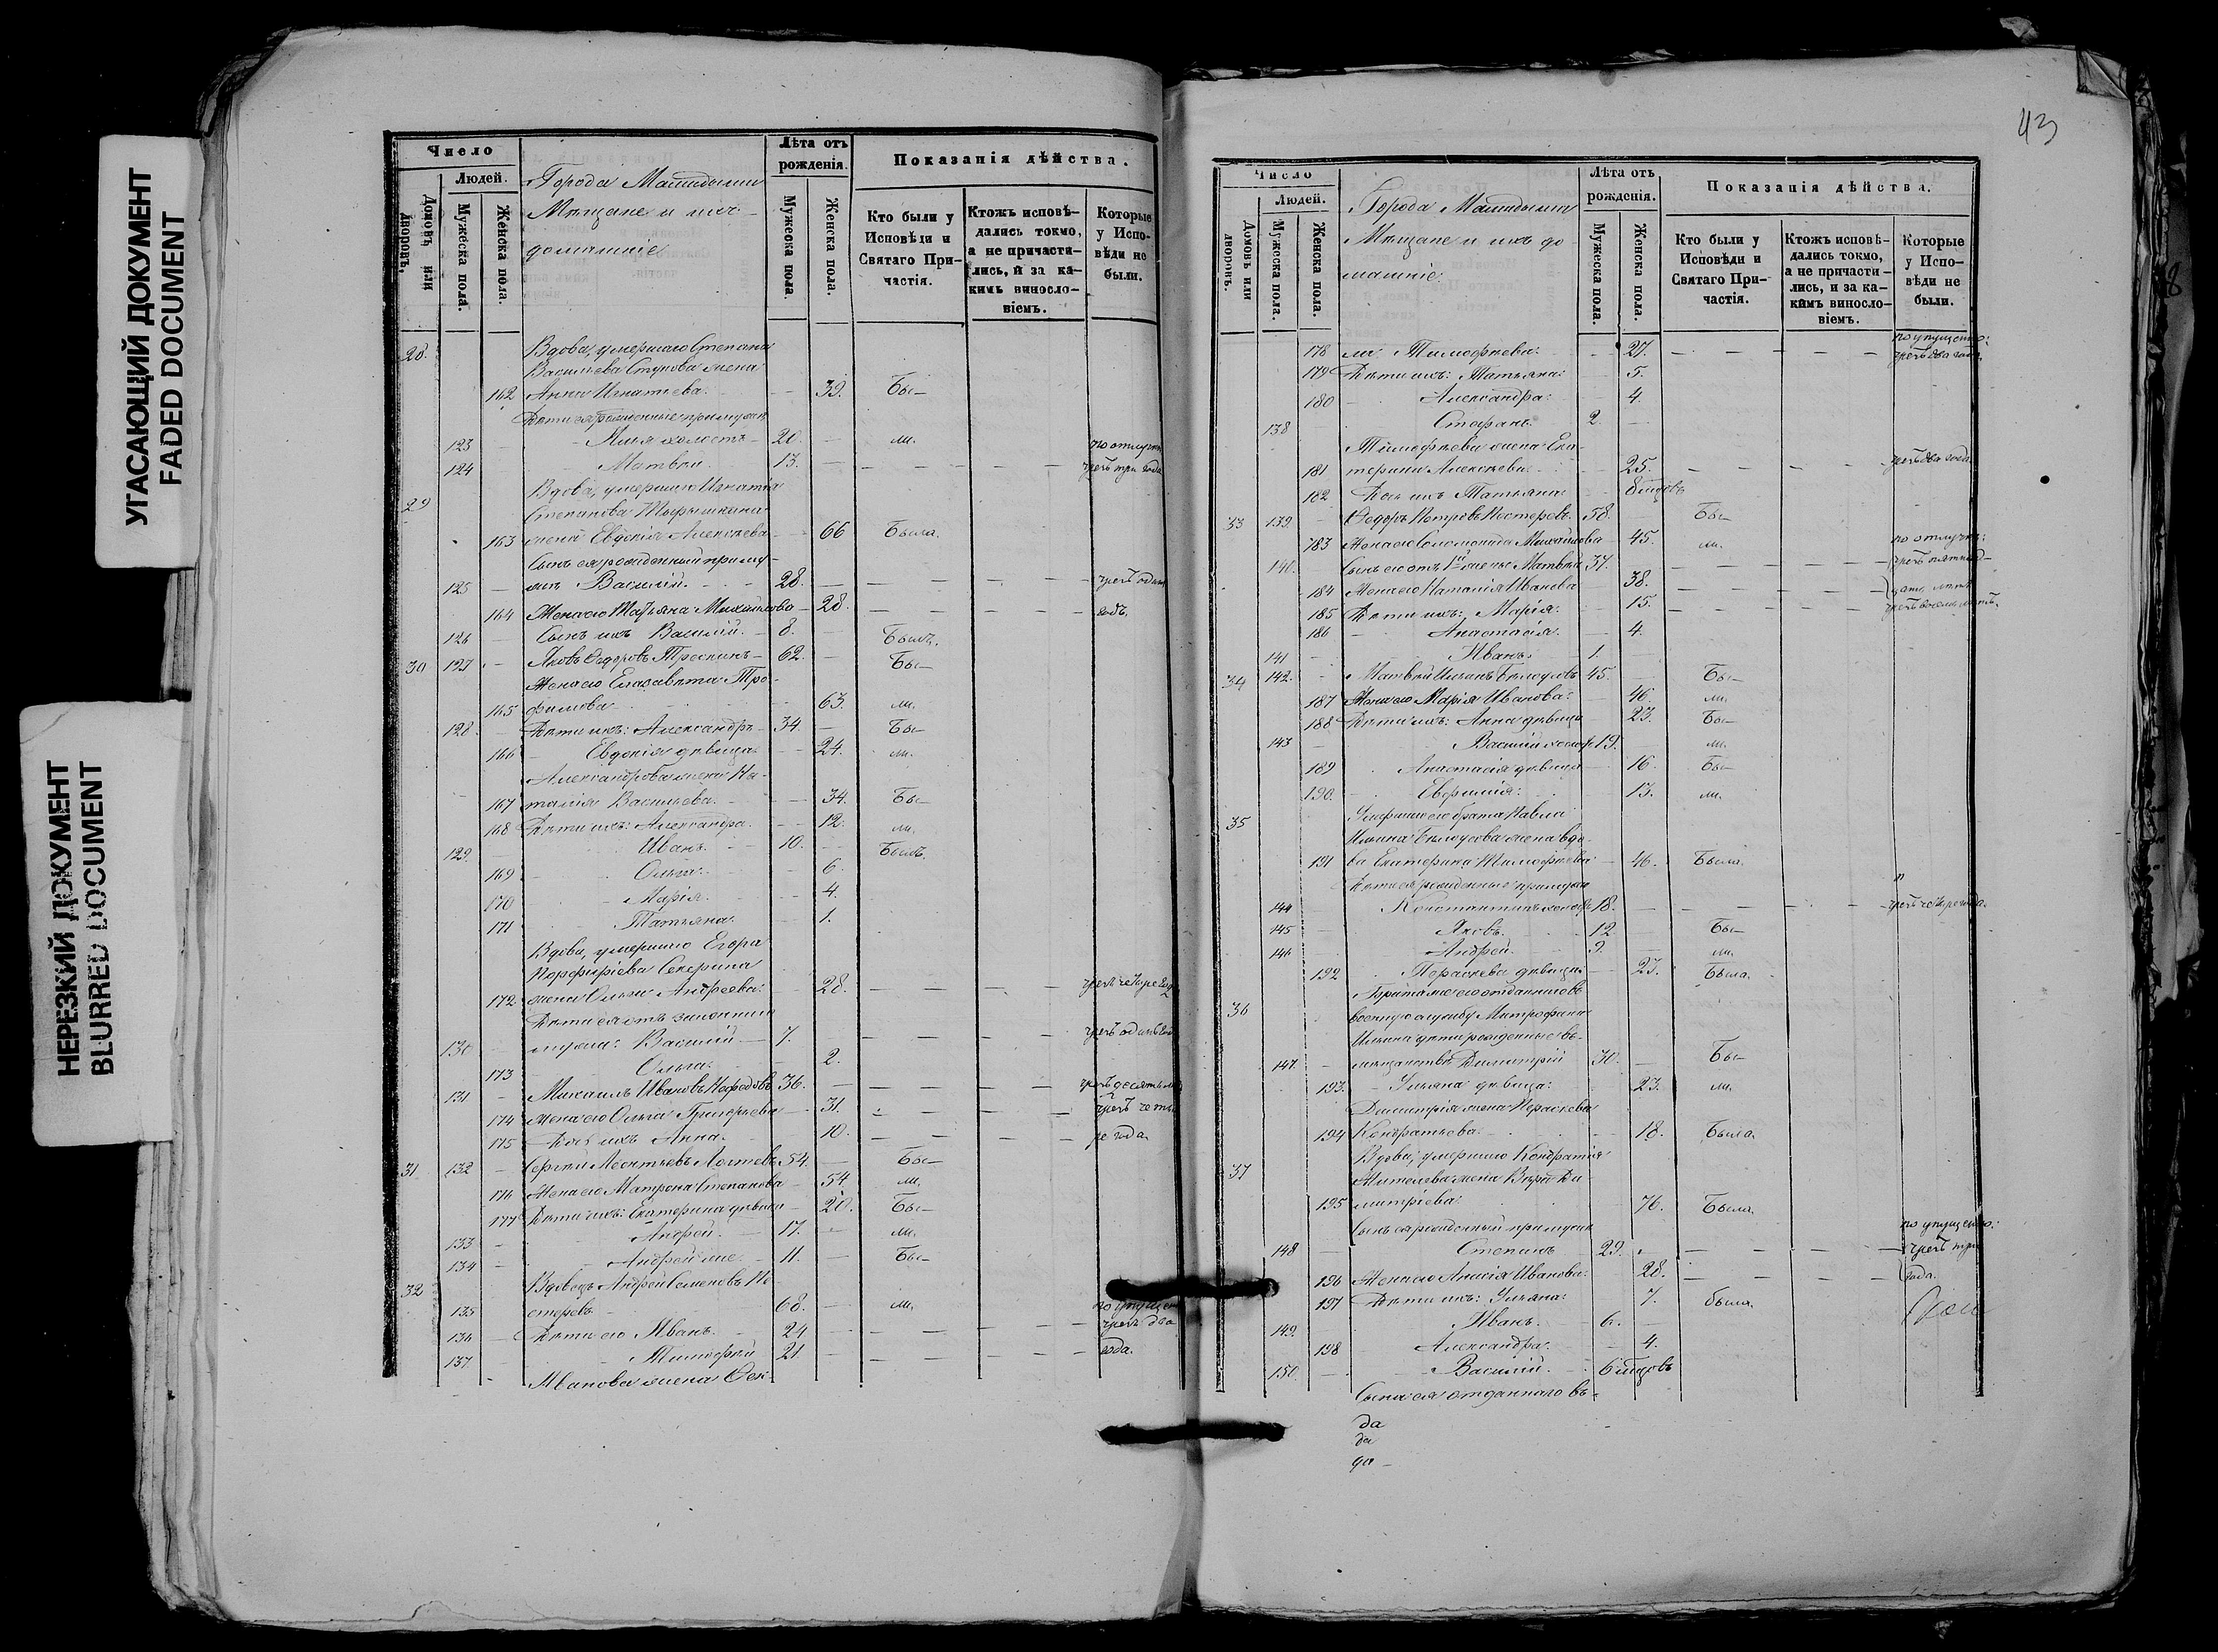 УГАСАЮЩИЙ ДОКУМЕНТ
FADED DOCUMENT
НЕРЕЗКИЙ ДОКУМЕНТ
BLURRED DOCUMENT
Число
Лѣта отъ рожденія.
Показанія дѣйства.
Людей.
Домовъ или дворовъ.
Мужеска пола.
Женска пола.
Города
Мѣщане и ихъ
домашніе
Мужеска пола.
Женска пола.
Кто были у Исповѣди и Святаго Причастія.
Ктожъ исповѣдались токмо, а не причастились, и за какимъ винословіемъ.
Которые у Исповѣди не были.
28. Вдова, умершаго Степана
Васильева жена
162 Анна Игнатьева. 39. Бы-
Дѣти ея рожденные при мужѣ
123 Илья холостъ 20. ли.
124 Матвей. 13. чрезъ три года
29 Вдова, умершаго Игнатія
Степанова
163 жена Евдокія Алексѣева 66 Была.
Сынъ ея рожденный при му-
125 жѣ Василій. 28. чрезъ одинъ
164 Жена его Татьяна Михайлова 28. годъ.
126 Сынъ ихъ Василій. 8. Былъ.
30 127 Яковъ Ѳедоровъ 62. Бы-
Жена его Елисавета Тро-
165 фимова 63. ли.
128. Дѣти ихъ: Александръ 34. Бы-
166 Евдокія дѣвица 24. ли.
Александрова жена На-
167 талія Васильева. 34. Бы-
168 Дѣти ихъ: Александра. 12. ли.
129. Иванъ. 10. Былъ.
169 Ольга. 6.
170 Марія. 4.
171 Татьяна. 1.
Вдова, умершаго Егора
Порфиріева
172 жена Ольга Андреева. 28. чрезъ четыре года
Дѣти ея отъ законнаго
130 мужа: Василій 7. чрезъ одинъ годъ
173 Ольга. 2.
131 Михаилъ Ивановъ 36. чрезъ десять
174 Жена его Ольга Григорьева 31. чрезъ четы-
175 Дочь ихъ Анна. 10. ре года.
31 132 Сергѣй Леонтьевъ 54. Бы-
176 Жена его Матрона Степанова 54 ли.
177 Дѣти ихъ: Екатерина дѣвица 20. Бы-
133 Андрей. 17. ли.
134 Андрей же 11. Бы-
32 Вдовецъ Андрей Семеновъ Не-
135 стеровъ 68. ли. по упущен
136 Дѣти его Иванъ. 24 чрезъ два
137 Тимофей 21 года.
Иванова жена Ѳек-
43
Число
Лѣта отъ рожденія.
Показанія дѣйства.
Людей.
Домовъ или дворовъ.
Мужеска пола.
Женска пола.
Города
Мѣщане и ихъ до-
машніе
Мужеска пола.
Женска пола.
Кто были у Исповѣди и Святаго Причастія.
Ктожъ исповѣдались токмо, а не причастились, и за какимъ винословіемъ.
Которые у Исповѣди не были.
по упущенію:
178 ла Тимофѣева. 27. чрезъ два года.
179 Дѣти ихъ: Татьяна. 5.
180 Александра. 4.
138 Стефанъ. 2.
Тимофѣева жена Ека-
181 терина Алексѣева 25. чрезъ два года
182 Дочь ихъ Татьяна 8 мѣсцовъ
33 139 Ѳедоръ Петровъ Нестеровъ. 58. Бы-
183 Жена его Соломонида Михайлова 45. ли. по отлучкѣ:
140. Сынъ его отъ 1й жены Матвей 37. чрезъ пятнад-
184 Жена его Наталія Иванова 38. цать лѣтъ
185 Дѣти ихъ: Марія. 15. чрезъ восемь лѣтъ.
186 Анастасія. 4.
141 Иванъ. 1.
34 142. Матвей Ильинъ Бѣлоусовъ 45. Бы-
187 Жена его Марія Иванова. 46. ли.
188 Дѣти ихъ: Анна дѣвица 23. Бы-
143 Василій холостъ 19. ли.
189 Анастасія дѣвица 16. Бы-
190. Евфимія. 13. ли.
35 Умершаго брата Павла
Ильина Бѣлоусова жена вдо-
191 ва Екатерина Тимофѣева 46. Была.
Дѣти ея рожденные при мужѣ
144 Константинъ холостъ 18. чрезъ четыре года.
145 Яковъ. 12. Бы-
146 Андрей. 9. ли.
192 Параскева дѣвица 23. Была.
36 Брата же его отданнаго въ
военную службу Митрофана
Ильина дѣти рожденные въ
147. мѣщанствѣ Димитрій 30. Бы-
193. Ульяна дѣвица. 23. ли.
Димитрія жена Параскева
194 Кондратьева. 18. Была.
37 Вдова, умершаго Кондратія
жена Вѣра Ди-
195 митріева. 76. Была.
Сынъ ея рожденный при мужѣ по упущенію:
148 Степанъ 29. чрезъ три
196 Жена его Анисія Иванова. 28. года.
197 Дѣти ихъ: Ульяна. 7. была.
149. Иванъ. 6.
198 Александра. 4.
150. Василій. 6 мѣсцовъ
Сына ея отданнаго въ
да
да
да